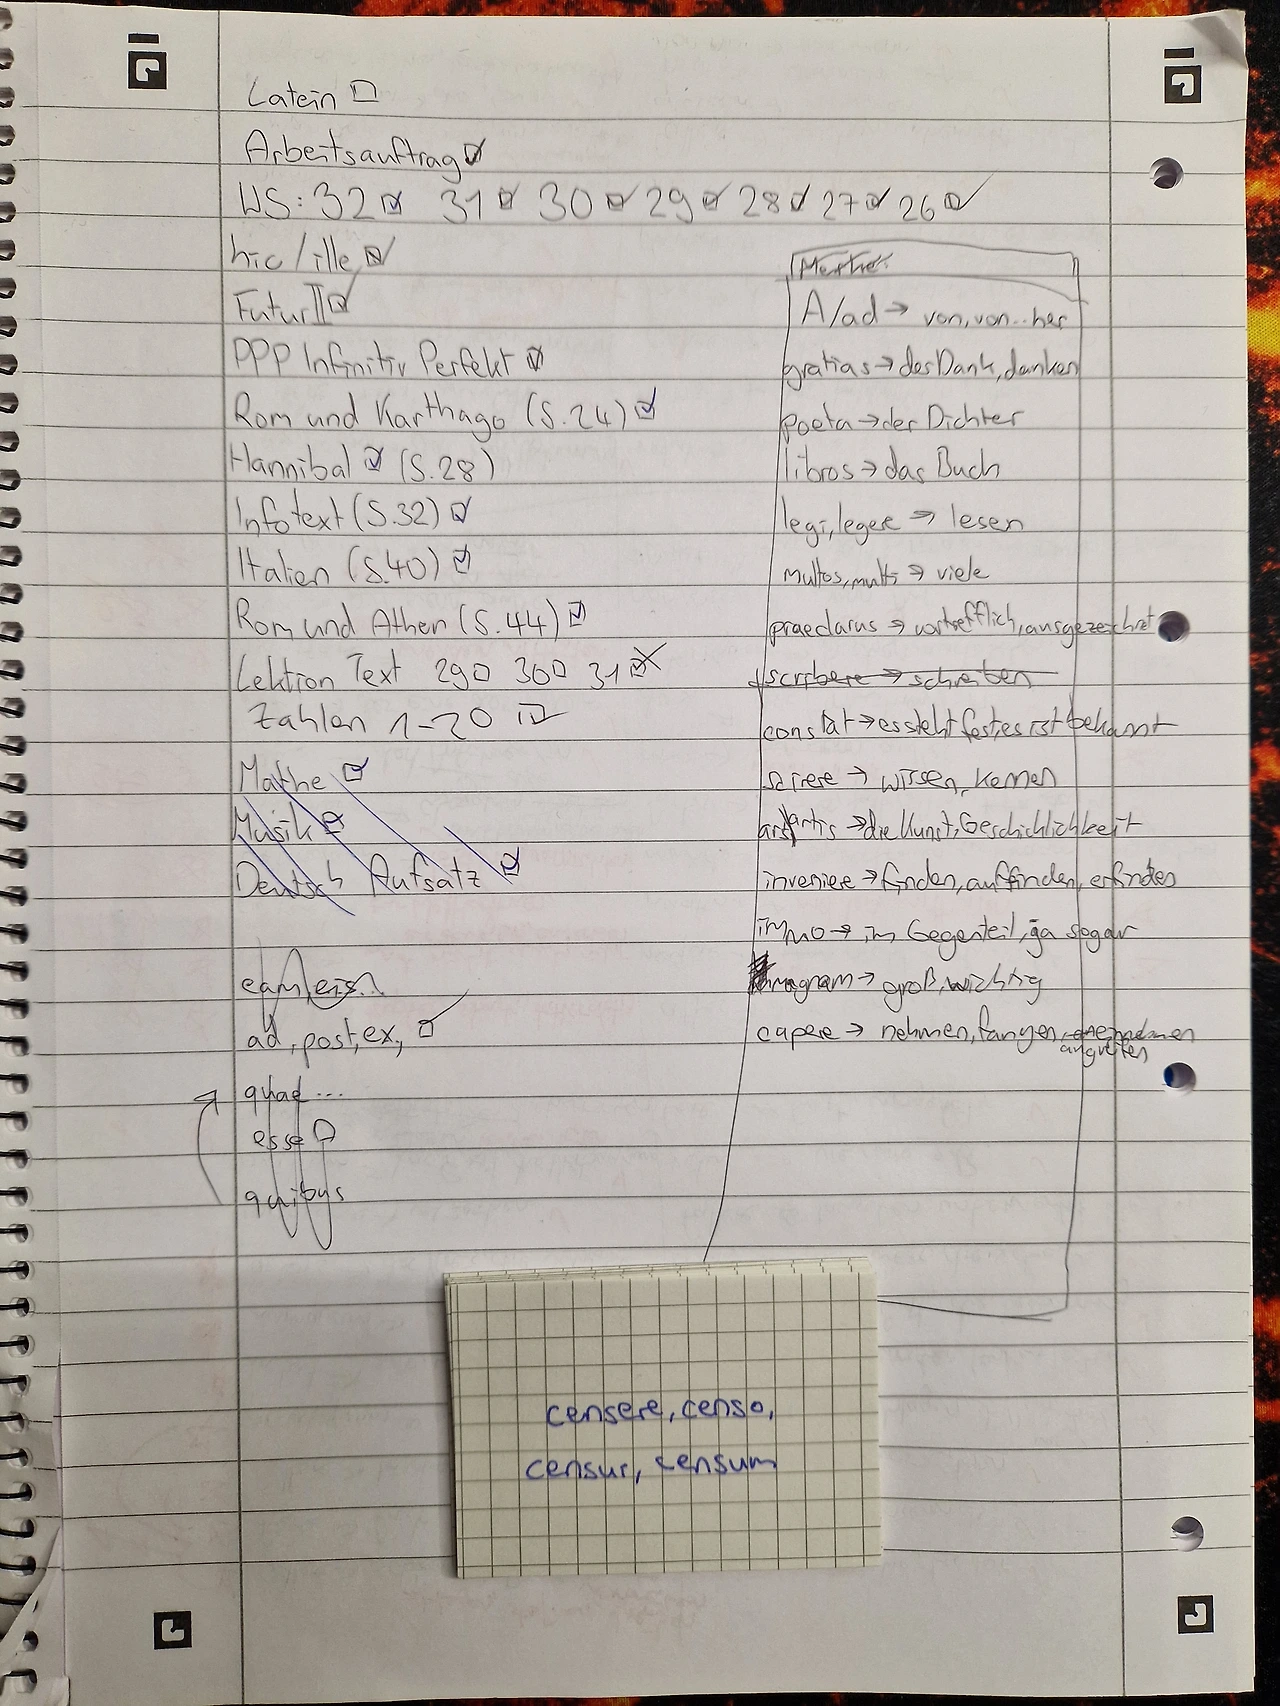 Latein
Arbeitsauftrag
WS: 32 31 30 29 28 27 26
hic/ille
Futur II
PPP Infinitiv Perfekt
Rom und Karthago (S.24)
Hannibal (S.28)
Infotext (S.32)
Italien (S.40)
Rom und Athen (S.44)
Lektion Text 29 30 31
Zahlen 1-20
Mathe
Musik
Deutsch Aufsatz
eam, eis..
ad, post, ex,
quae ...
esse
quibus
Mathe:
A/ad → von, von...her
gratias → der Dank, danken
poeta → der Dichter
libros → das Buch
legi, legere → lesen
multos, multi → viele
praeclarus → vortrefflich, ausgezeichnet
scribere → schreiben
constat → es steht fest, es ist bekannt
scire → wissen, kennen
ars, artis → die Kunst, Geschichlichkeit
invenire → finden, auffinden, erfinden
immo → im Gegenteil, ja sogar
magnam → groß, wichtig
capere → nehmen, fangen, angreifen
censere, censo,
censui, censum